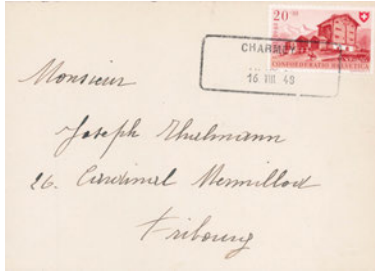 20
CHARMEY
CONFOEDERATIO HELVETICA
16. VIII. 48
Monsieur
Joseph Thalmann
26. Cardinal Mermillod
Fribourg